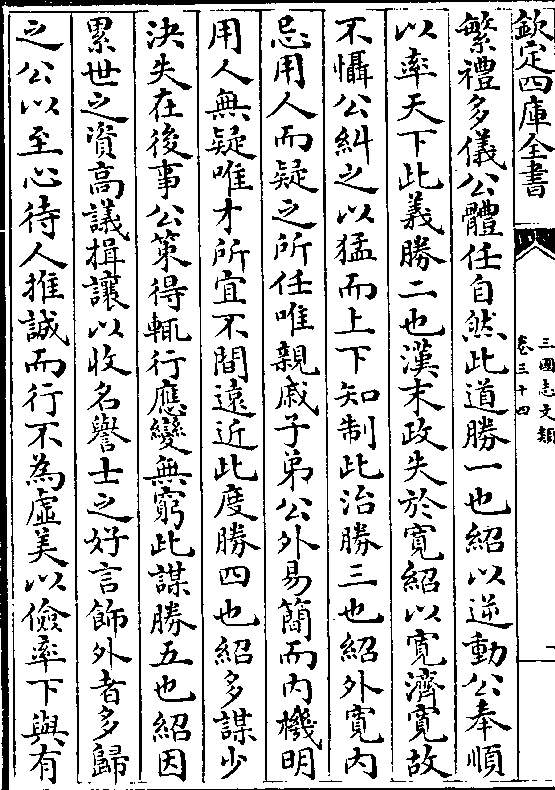 欽定四庫全書
三國志文類
卷三十四
一
繁禮多儀公體任自然此道勝一也紹以逆動公奉順
以率天下此義勝二也漢末政失於寛紹以寛濟寛故
不懾公糾之以猛而上下知制此治勝三也紹外寛内
忌用人而疑之所任唯親戚子弟公外易簡而内機明
用人無疑唯才所宜不間遠近此度勝四也紹多謀少
決失在後事公策得輒行應變無窮此謀勝五也紹因
累世之資高議揖讓以收名譽士之好言飾外者多歸
之公以至心待人推誠而行不為虛美以儉率下與有